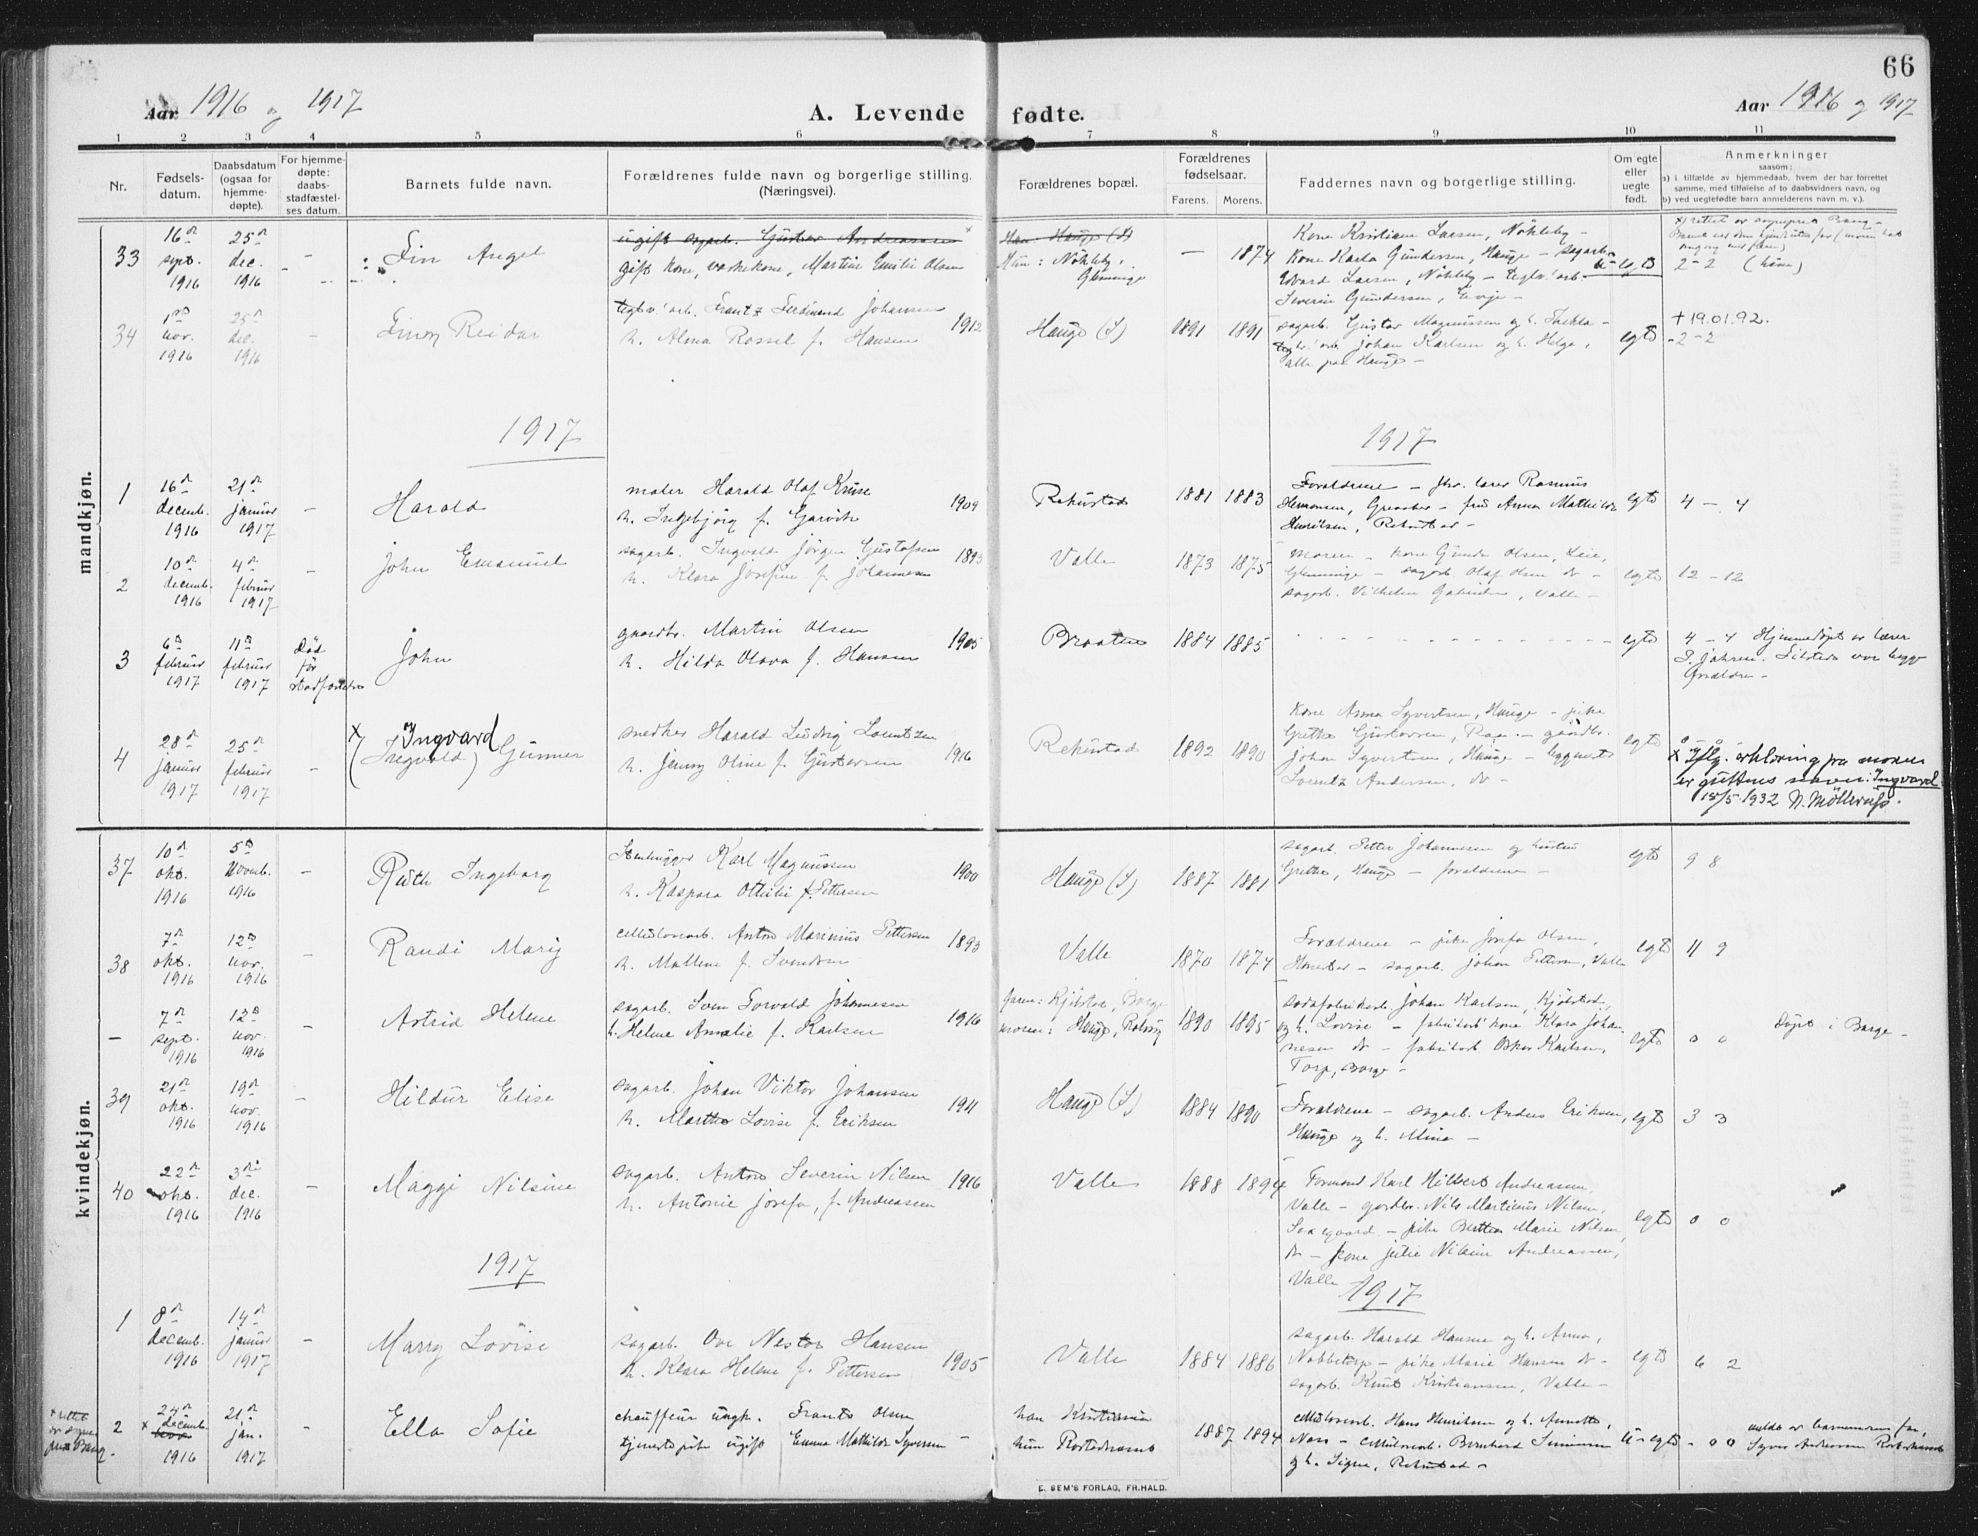 66
Aar 1916 og 1917
A. Levende fødte.
Aar 1916 og 1917
1 2 3 4 5 6 7 8 9 10 11
Nr.
Fødsels-
datum.
Daabsdatum
(ogsaa for
hjemme-
døpte).
For hjemme-
døpte:
daabs-
stadfæstel-
ses datum.
Barnets fulde navn.
Forældrenes fulde navn og borgerlige stilling.
(Næringsvei).
Forældrenes bopæl.
Forældrenes
fødselsaar.
Farens. Morens.
Faddernes navn og borgerlige stilling.
Om egte
eller
uegte
født.
Anmerkninger
saasom:
a) i tilfælde av hjemmedaab, hvem der har forrettet
samme, med tilføielse af to daabsvidners navn, og
b) ved uegtefødte barn anmelderens navn m. v.).
mandkjøn.
33
16de
sept.
1916
25de
dec.
1916
Fin Angel
ugift sagarb. Gustav Andreassen
gift kone, vaskekone, Martine Emilie Olsen
Han: Hauge (S)
Hun: Nøkleby,
Glemminge
— 1874
Kone Kristiane Larsen, Nøkleby –
Kone Karla Gundersen, Hauge – sagarb.
Edvard Larsen, Nøkleby – teglv.arb.
Severin Gundersen, Evje –
u-egte
2 – 2
34
1ste
nov.
1916
25de
dec.
1916
Einar Reidar
teglv. arb. Frantz Ferdinand Johansen
h. Alma Rossel f. Hansen
1912
Hauge (S)
1891 1891
sagarb. Gustav Magnussen og h. Thekla –
teglv. arb. Johan Karlsen og h. Helga,
alle paa Hauge –
egte
+ 19.01.92.
– 2 – 2
1917
1917
1
16de
decemb.
1916
21de
januar
1917
–
Harald
maler Harald Olaf Kruse
h. Ingebjørg f. Garvik
1909
Rekustad
1881 1883
Forældrene – fhv. lærer Rasmus
Hermansen, Greaaker – frue Anna Mathilde
Henriksen, Rekustad –
egte
4 – 4
2
10de
decemb.
1916
4de
februar
1917
–
John Emanuel
sagarb. Ingvald Jørgen Gustafsen
h. Klara Josefine f. Johannesen
1895
Valle
1873 1875
Moren – kone Gunda Olsen, Leie,
Glemminge – sagarb. Olaf Olsen do –
sagarb. Vilhelm Gabrielsen, Valle –
egte
12 – 12
3
6te
februar
1917
11te
februar
1917
Død
før
stadfæstelse
John
gaardbr. Martin Olsen
h. Hilda Olava f. Hansen
1905
Braaten
1884 1885
egte
4 – 4 Hjemmedøpt av lærer
J. Jahren. Tilstede var begge
forældre –
4
28de
januar
1917
25de
februar
1917
–
x Ingvard
(Ingvald) Gunnar
snedker Harald Ludvig Lorentzen
h. Jenny Oline f. Gustavsen
1916
Rekustad
1892 1890
Kone Anna Syvertsen, Hauge – pike
Grethe Gustavsen, Raa – gaardbr.
Johan Syvertsen, Hauge – bygmester
Lorentz Andersen, do –
egte
0 – 0
x Iflg. erklæring fra moren
er guttens navn: Ingvard.
18/5 1932 N. Møllerup.
kvindekjøn.
37
10de
okt.
1916
5te
Novemb.
1916
–
Ruth Ingeborg
Stenhugger Karl Magnussen
h. Kaspara Ottilie f. Pettersen
1900
Hauge (S)
1887 1881
sagarb. Petter Johannesen og hustru
Grethe, Hauge – forældrene –
egte
9 8
38
7de
okt.
1916
12te
nov.
1916
–
Randi Mariy
cellulosearb. Anton Marinius Pettersen
h. Mallene f. Svendsen
1893
Valle
1870 1874
Forældrene – pike Josefa Olsen,
– sagarb. Johan Pettersen, Valle
egte
11 9
–
7de
sept.
1916
12te
nov.
1916
–
Astrid Helene
sagarb. Sven Torvald Johannesen
h. Helene Amalie f. Karlsen
1916
faren: Kjølstad, Borge
moren: Hauge, Rolvsøy
1890 1895
sodafabrikarb. Johan Karlsen, Kjølstad,
og h. Lovise – fabrikarb. kone Klara Johan-
nesen do – fabrikarb. Oskar Karlsen,
Torp, Borge –
egte
0 0
Døpt i Borge –
39
21de
okt.
1916
19de
nov.
1916
–
Hildur Elise
sagarb. Johan Viktor Johansen
h. Martha Lovise f. Eriksen
1911
Hauge (S)
1884 1890
Forældrene – sagarb. Anders Eriksen,
Hauge og h. Mina –
egte
3 3
40
22de
okt.
1916
3die
dec.
1916
–
Maggi Nilsine
sagarb. Anton Severin Nilsen
h. Antonie Josefa, f. Andreassen
1916
Valle
1888 1894
Formand Karl Hilbert Andreassen,
Valle – gaardbr. Nils Martinius Nilsen,
– pike Berthea Marie Nilsen
do – Kone Julie Nilsine Andreassen,
Valle
egte
0 0
1917
1917
1
8de
decemb.
1916
14de
januar
1917
–
Marry Lovise
sagarb. Ove Nestor Hansen
h. Klara Helene f. Pettersen
1905
Valle
1884 1886
sagarb. Harald Hansen og h. Anna,
Nabbetorp – pike Marie Hansen do –
sagarb. Knut Kristiansen, Valle –
egte
6 2
2
24de
x decemb.
1916
21de
jan.
1917
–
Ella Sofie
chauffeur ungk. Frants Olsen
tjenestepike ugift Emma Mathilde Syversen
han Kristiania
hun Rostadneset
1887 1894
cellulosearb. Hans Henriksen og h. Annette,
Næss – cellulosearb. Bernhard Simensen
og h. Signe, Rekustad –
u-egte
– 0 0
meldt av barnemorens far,
Syver Andreassen
E. SEM'S FORLAG, FR.HALD.